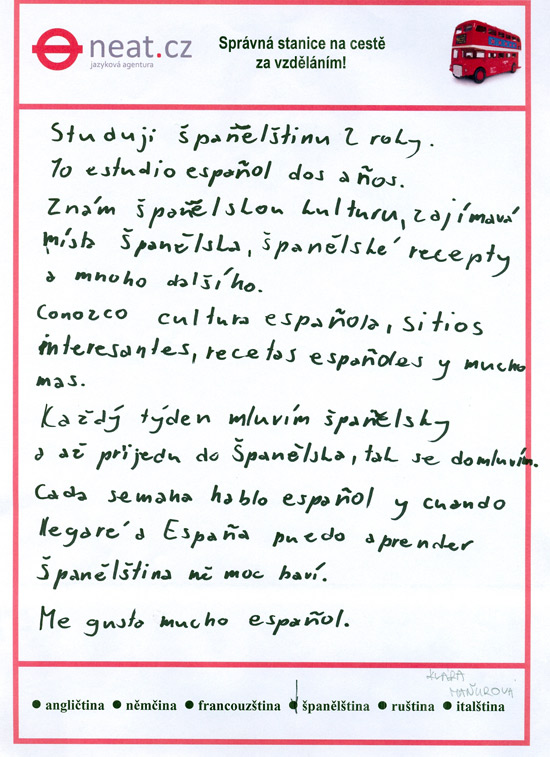 neat.cz
jazyková agentura
Správná stanice na cestě
za vzděláním!
Studuji španělštinu 2 roky.
Yo estudio español dos años.
Znám španělskou kulturu, zajímavá
místa Španělska, španělské recepty
a mnoho dalšího.
Conozco cultura española, sitios
interesantes, recetas españoles y mucho
mas.
Každý týden mluvím španělsky
a až prijedu do Španělska, tak se domluvím.
Cada semana hablo español y cuando
llegaré a España puedo aprender
Španělština mě moc baví.
Me gusta mucho español.
KLARA
MAŇUROVA
• angličtina • němčina • francouzština • španělština • ruština • italština